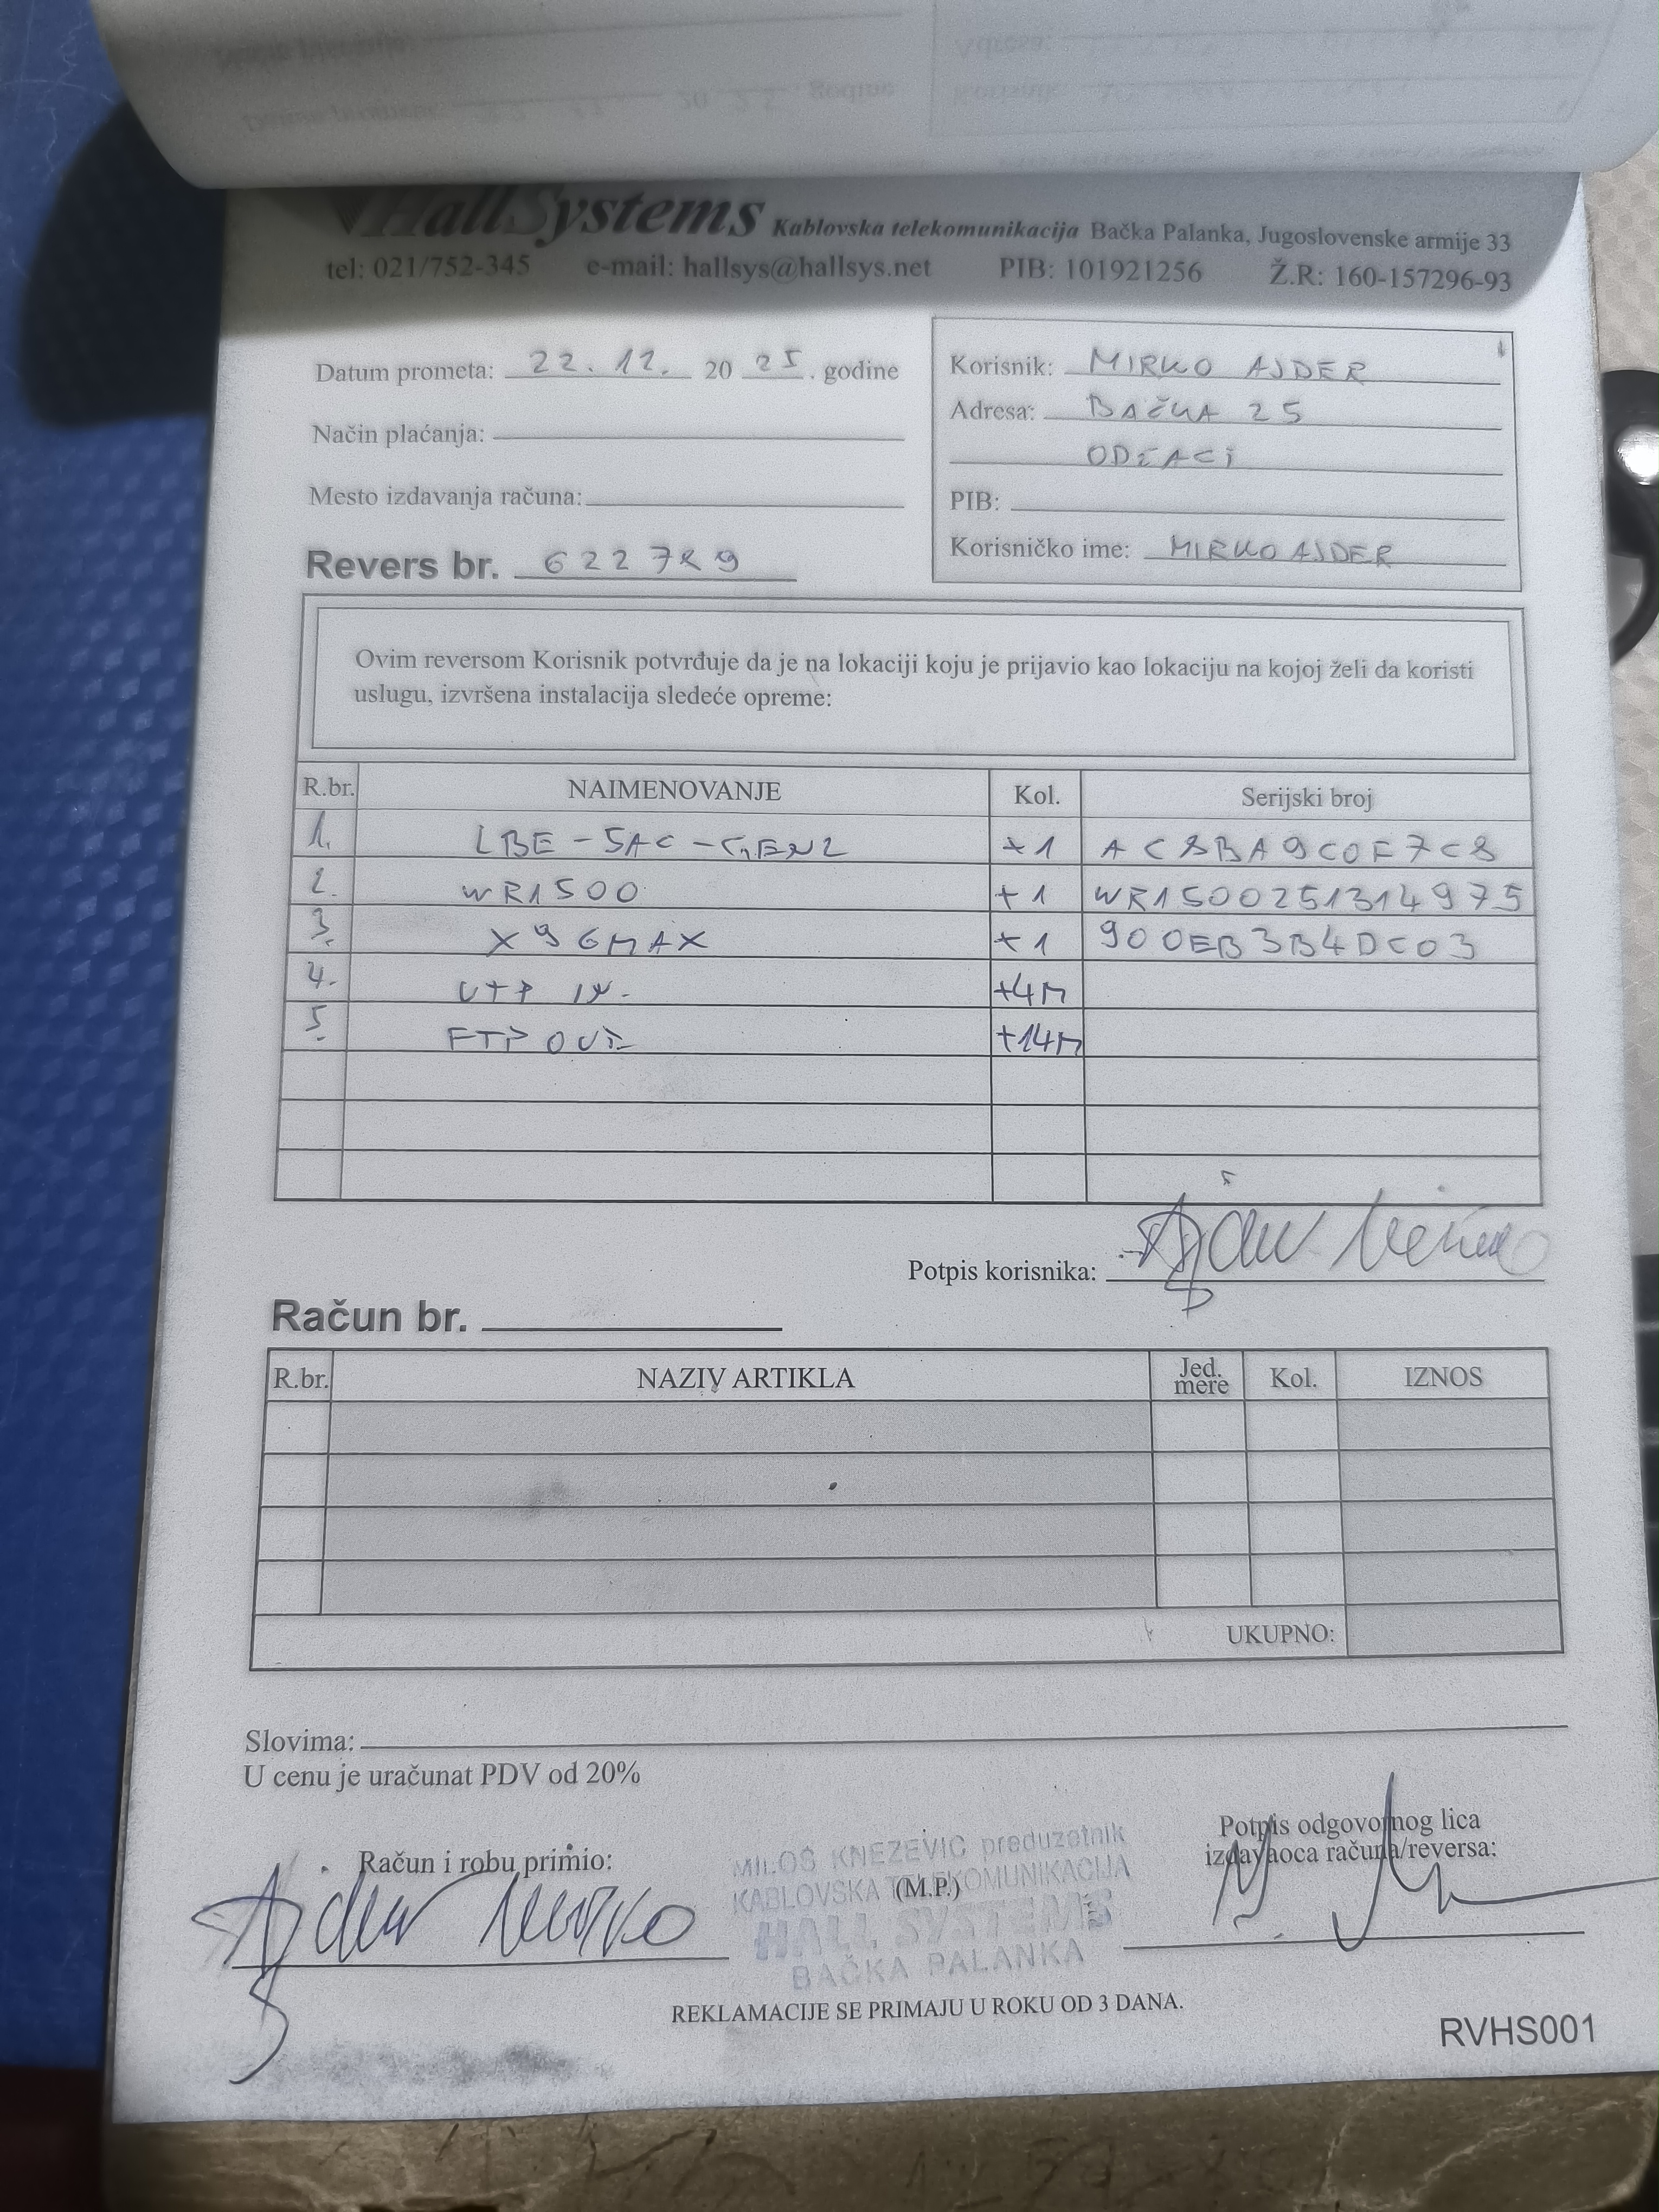 HallSystems Kablovska telekomunikacija Bačka Palanka, Jugoslovenske armije 33
tel: 021/752-345 e-mail: hallsys@hallsys.net PIB: 101921256 Ž.R: 160-157296-93
Datum prometa: 22. 12. 20 25. godine
Način plaćanja:
Mesto izdavanja računa:
Revers br. 622789
Korisnik: MIRKO AJDER
Adresa: BAČKA 25
ODŽACI
PIB:
Korisničko ime: MIRKO AJDER
Ovim reversom Korisnik potvrđuje da je na lokaciji koju je prijavio kao lokaciju na kojoj želi da koristi
uslugu, izvršena instalacija sledeće opreme:
R.br. NAIMENOVANJE Kol. Serijski broj
1. LBE-5AC-GEN2 +1 AC8BA9C0F7C8
2. WR1500 +1 WR1500251314975
3. X96MAX +1 900EB3B4DC03
4. UTP IN. +4M
5. FTP OUT +14M
Potpis korisnika: Ajder Mirko
Račun br.
R.br. NAZIV ARTIKLA Jed. mere Kol. IZNOS
UKUPNO:
Slovima:
U cenu je uračunat PDV od 20%
Račun i robu primio:
Ajder Mirko
MILOŠ KNEZEVIC preduzetnik
KABLOVSKA TELEKOMUNIKACIJA
(M.P.)
HALL SYSTEMS
BAČKA PALANKA
Potpis odgovornog lica
izdavaoca računa/reversa:
REKLAMACIJE SE PRIMAJU U ROKU OD 3 DANA.
RVHS001